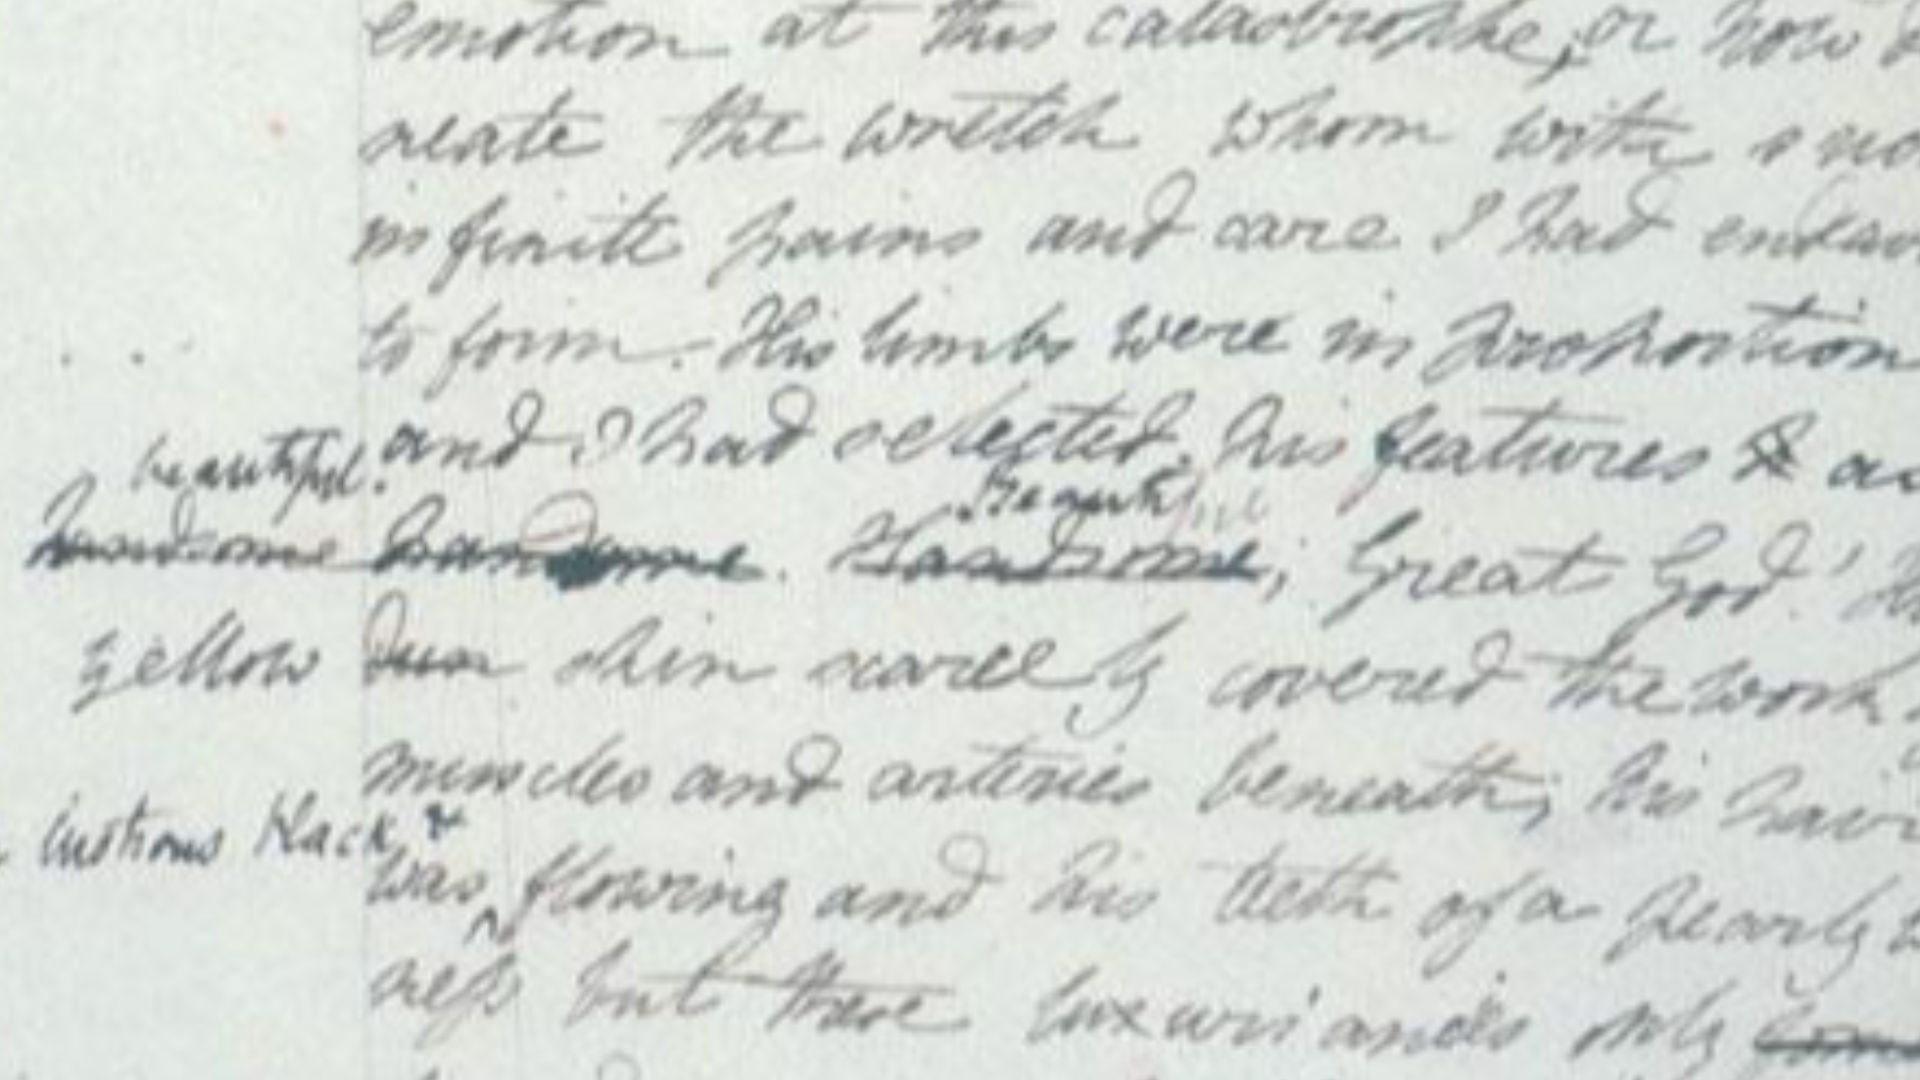 emotion at this catastrophe, or how
neate the wretch whom with
infinite pains and care I had endeav
to form. His limbs were in proportion
and I had selected his features & as
beautiful.
handsome handsome. Handsome; Great God! His
Beautiful
yellow dun skin scarcely covered the work
muscles and arteries beneath; his hair
lustrous black, &
was flowing and his teeth of a pearly w
ness but these luxuriances only